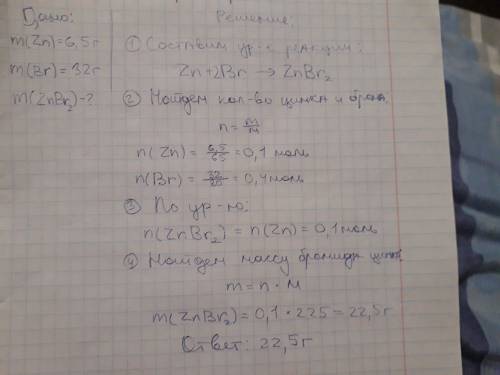 Дано:
m(Zn)=6,5г
m(Br)=32г
m(ZnBr₂)-?
Решение:
① Составим ур-е реакции:
Zn+2Br → ZnBr₂
② Найдем кол-во цинка и брома
n = m/M
n(Zn) = 6,5/65 = 0,1 моль
n(Br) = 32/80 = 0,4 моль
③ По ур-ю:
n(ZnBr₂) = n(Zn) = 0,1 моль
④ Найдем массу бромида цинка
m = n · M
m(ZnBr₂) = 0,1 · 225 = 22,5г
Ответ: 22,5г